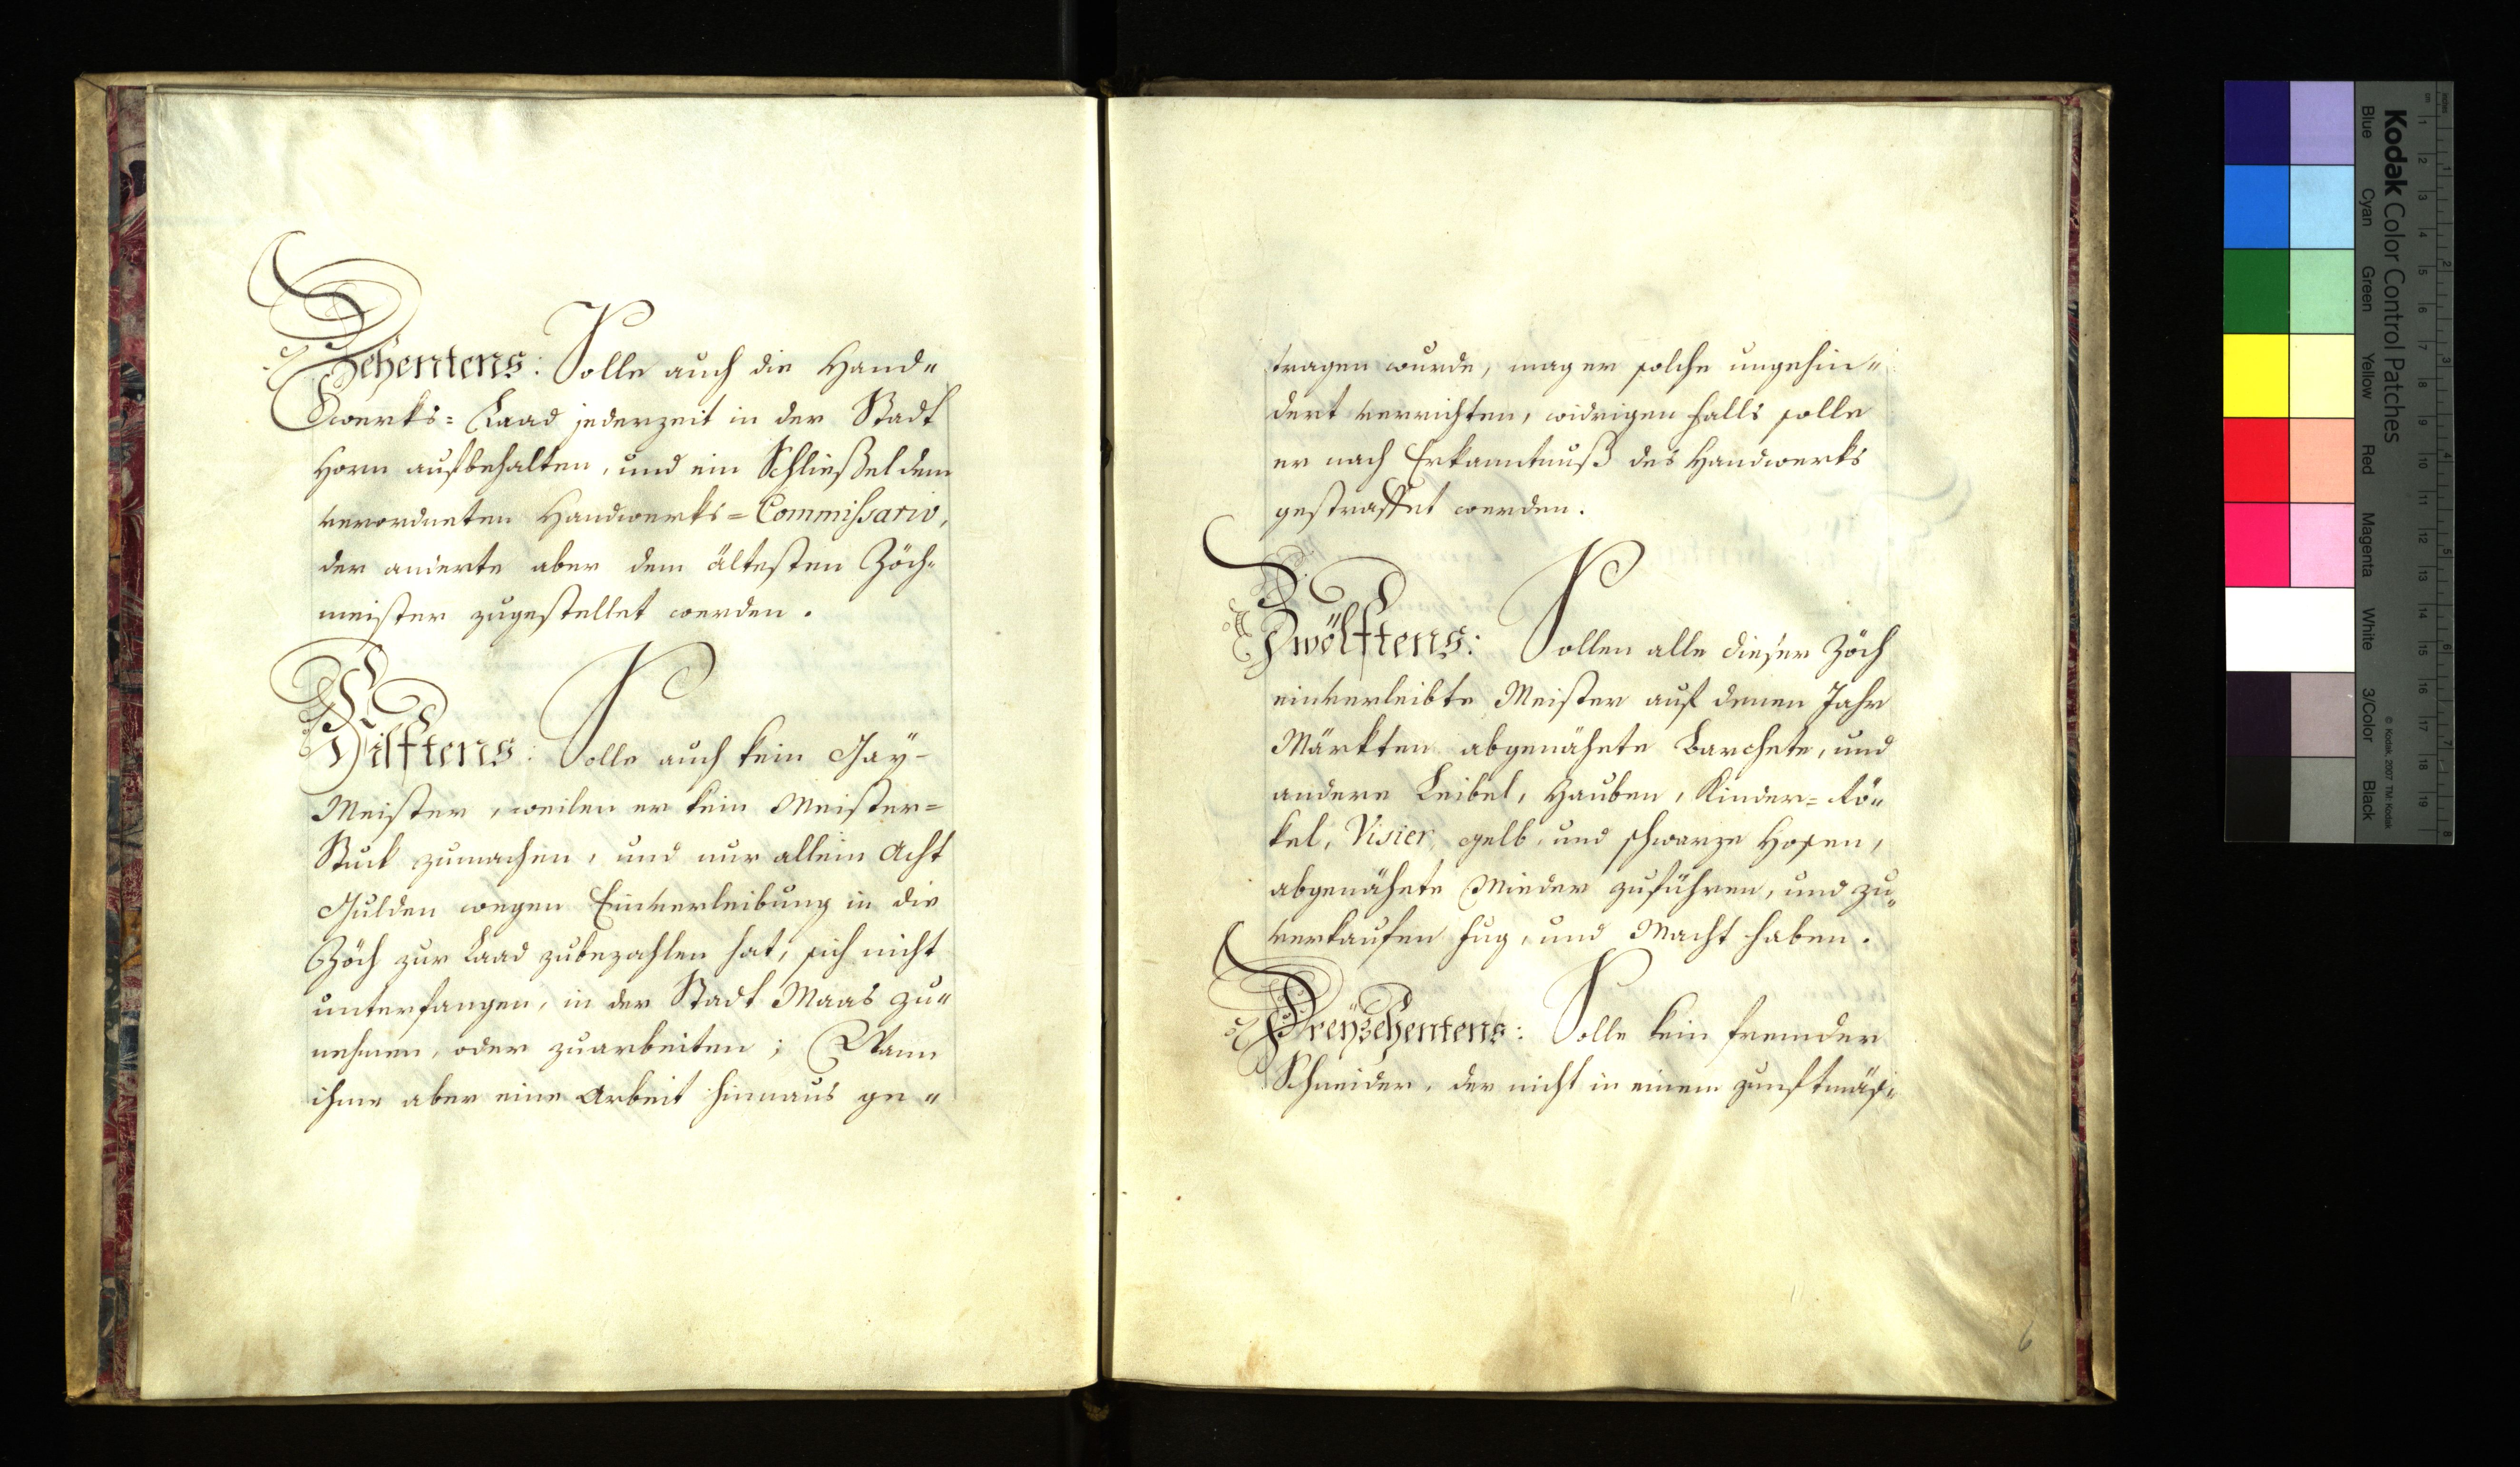 Zehentens: Solle auch die Hand„
werks= Laad jederzeit in der Stadt
Horn aufbehalten, und ein Schließel dem
verordneten Handwerks=Commissario,
der anderte aber dem ältesten Zöch„
meister zugestellet werden.
Eilftens: Solle auch kein Gäy-
Meister, weilen er kein Meister=
Stuck zumachen, und nur allein Acht
Gulden wegen Einverleibung in die
Zöch zur Laad zubezahlen hat, sich nicht
unterfangen, in der Stadt Maas zu„
nehmen, oder zuarbeiten; Wann
ihme aber eine Arbeit hinnaus ge„
tragen wurde, mag er solche ungehin„
dert verrichten, widrigen falls solle
er nach Erkanntnuß des Handwerks
gestraffet werden.
Zwölftens: Sollen alle dieser Zöch
einverleibte Meister auf denen Jahr
Märkten abgenähete Barchete, und
andere Leibel, Hauben, Kinder= Rö„
kel, Visier, gelb, und schwarze Hosen,
abgenähete Mieder zuführen, und zu„
verkaufen fug, und Macht haben.
Dreÿzehentens: Solle kein fremder
Schneider, der nicht in einem zunftmäsi„
6
Kodak Color Control Patches
Blue Cyan Green Yellow Red Magenta White 3/Color Black
© Kodak, 2007 TM: Kodak
inches 1 2 3 4 5 6 7 8
cm 1 2 3 4 5 6 7 8 9 10 11 12 13 14 15 16 17 18 19